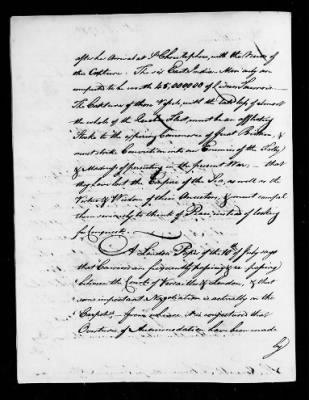 after the Arrival at St. Christophers, with the News of
the Capture. The six East India Men only are
computed to be worth 45,000000 of Livres Tournois.
The Capture of these Vessels, with the total loss of almost
the whole of the Fleet must be an afflicting
Stroke to the expiring Commerce of Great Britain, &
must strike Conviction into our Enemies of the Folly
& Madness of persisting in the present War — that
they have lost the Empire of the Sea, as well as the
Virtue & Wisdom of their Ancestors, & must compel
them seriously to think of Peace, instead of looking
for Conquest.
A London Paper of the 18th of July says
that Carriers are frequently passing & re passing
between the Courts of Versailles & London, & that
some important Negotiation is actually on the
Carpet — from whence it is conjectured that
Overtures of Accommodation have been made
by